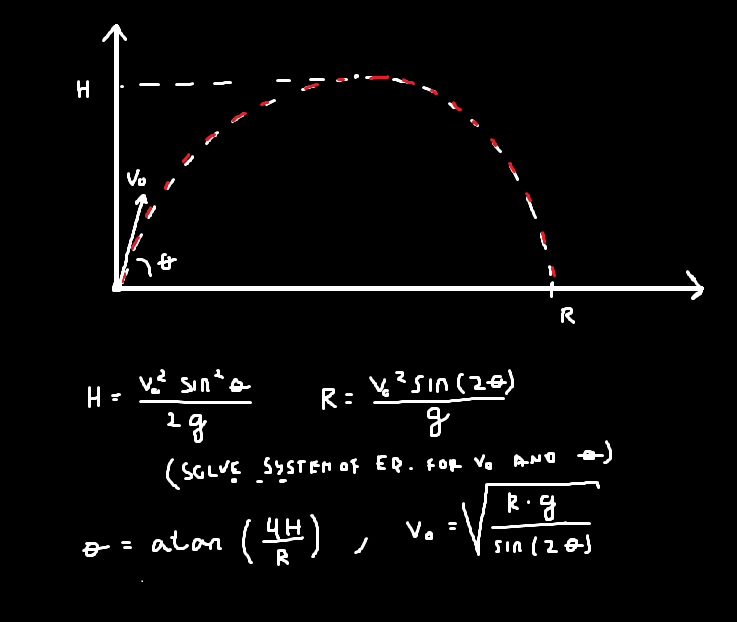 H
V₀
θ
R
H = V₀² sin² θ / 2g    R = V₀² sin(2θ) / g
(SOLVE SYSTEM OF EQ. FOR V₀ AND θ)
θ = atan (4H / R) , V₀ = √(R · g / sin(2θ))